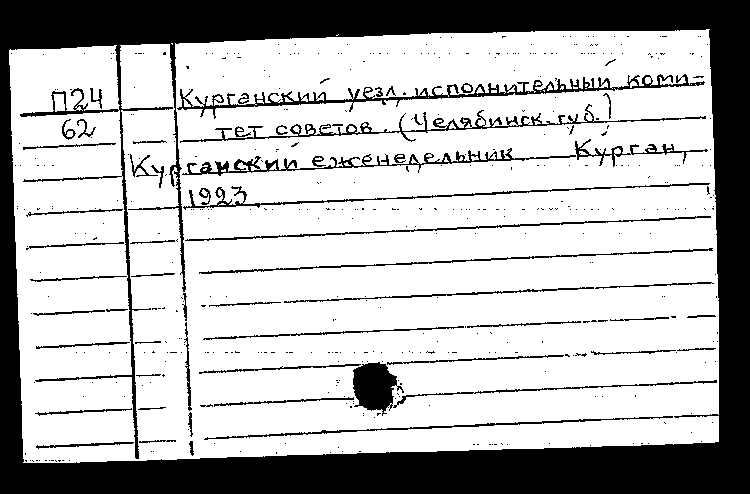 П24 Курганский уезд. исполнительный коми=
62 тет советов. (Челябинск. губ.)
Курганский еженедельник Курган,
1923.